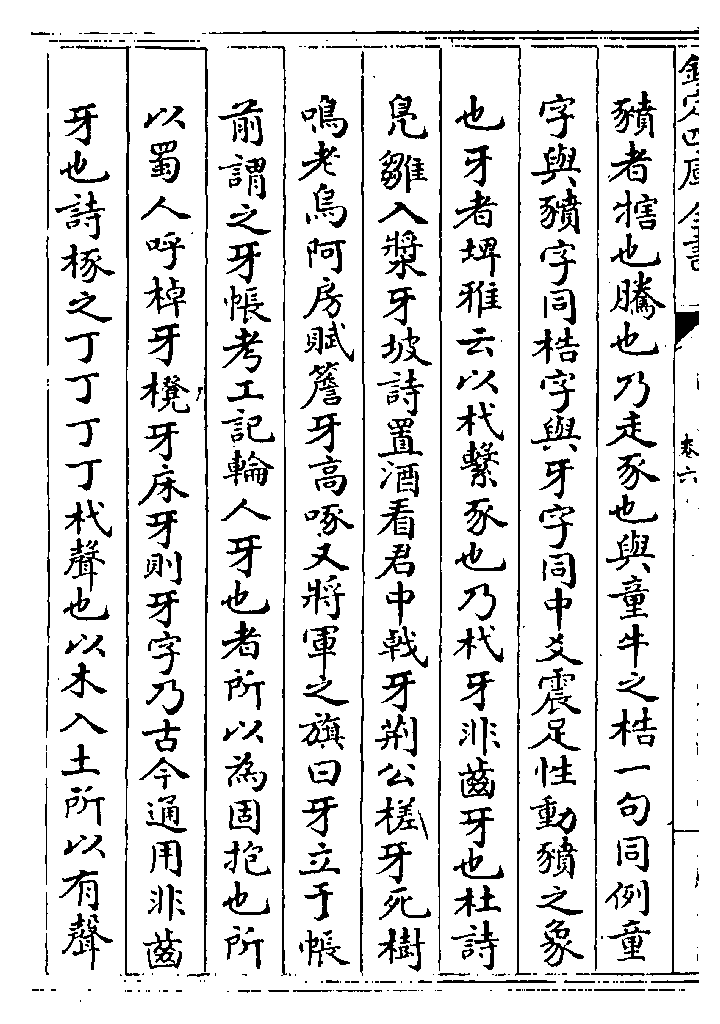 欽定四庫全書
卷六
豶者犗也騰也乃走豕也與童牛之梏一句同例童
字與豶字同梏字與牙字同中爻震足性動豶之象
也牙者埤雅云以杙繫豕也乃杙牙非齒牙也杜詩
鳧雛入槳牙坡詩置酒看君中戟牙荆公槎牙死樹
鳴老烏阿房賦簷牙高啄又將軍之旗曰牙立于帳
前謂之牙帳考工記輪人牙也者所以為固抱也所
以蜀人呼棹牙櫈牙床牙則牙字乃古今通用非齒
牙也詩椓之丁丁丁丁杙聲也以木入土所以有聲